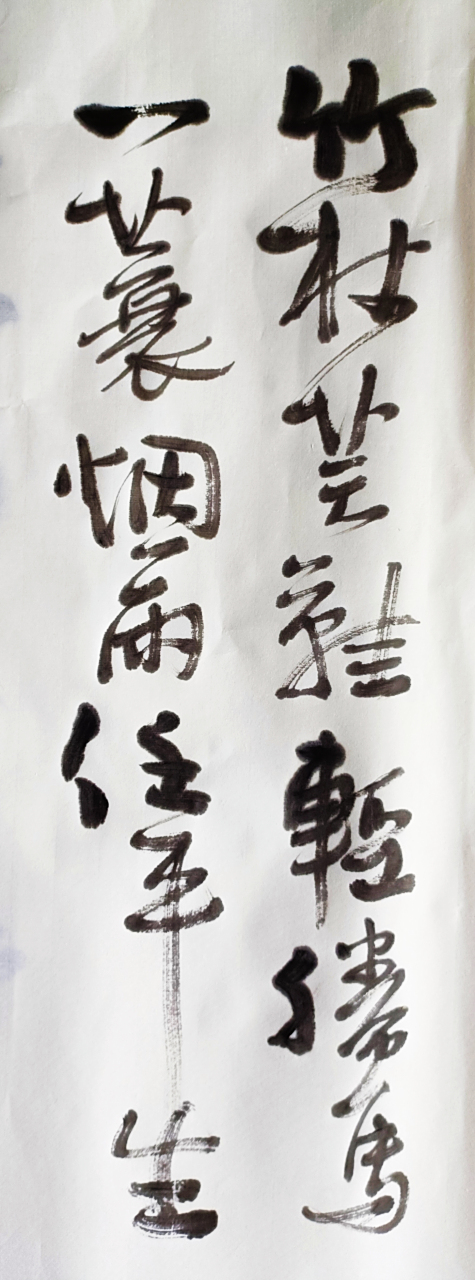 竹杖芒鞋輕勝馬
一蓑烟雨任平生